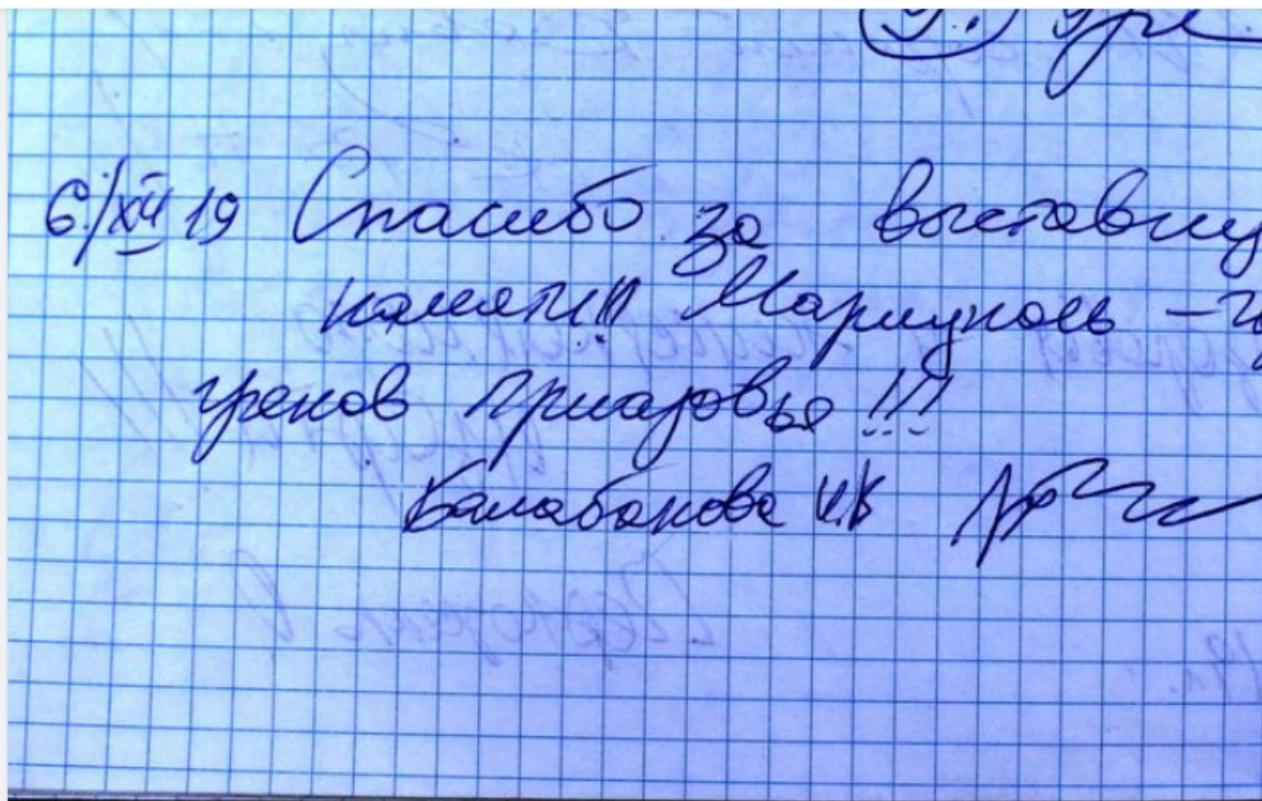 6/XII 19 Спасибо за выставку
памяти!!! Мариуполь –
греков Приазовья!!!
Балабанова И.К